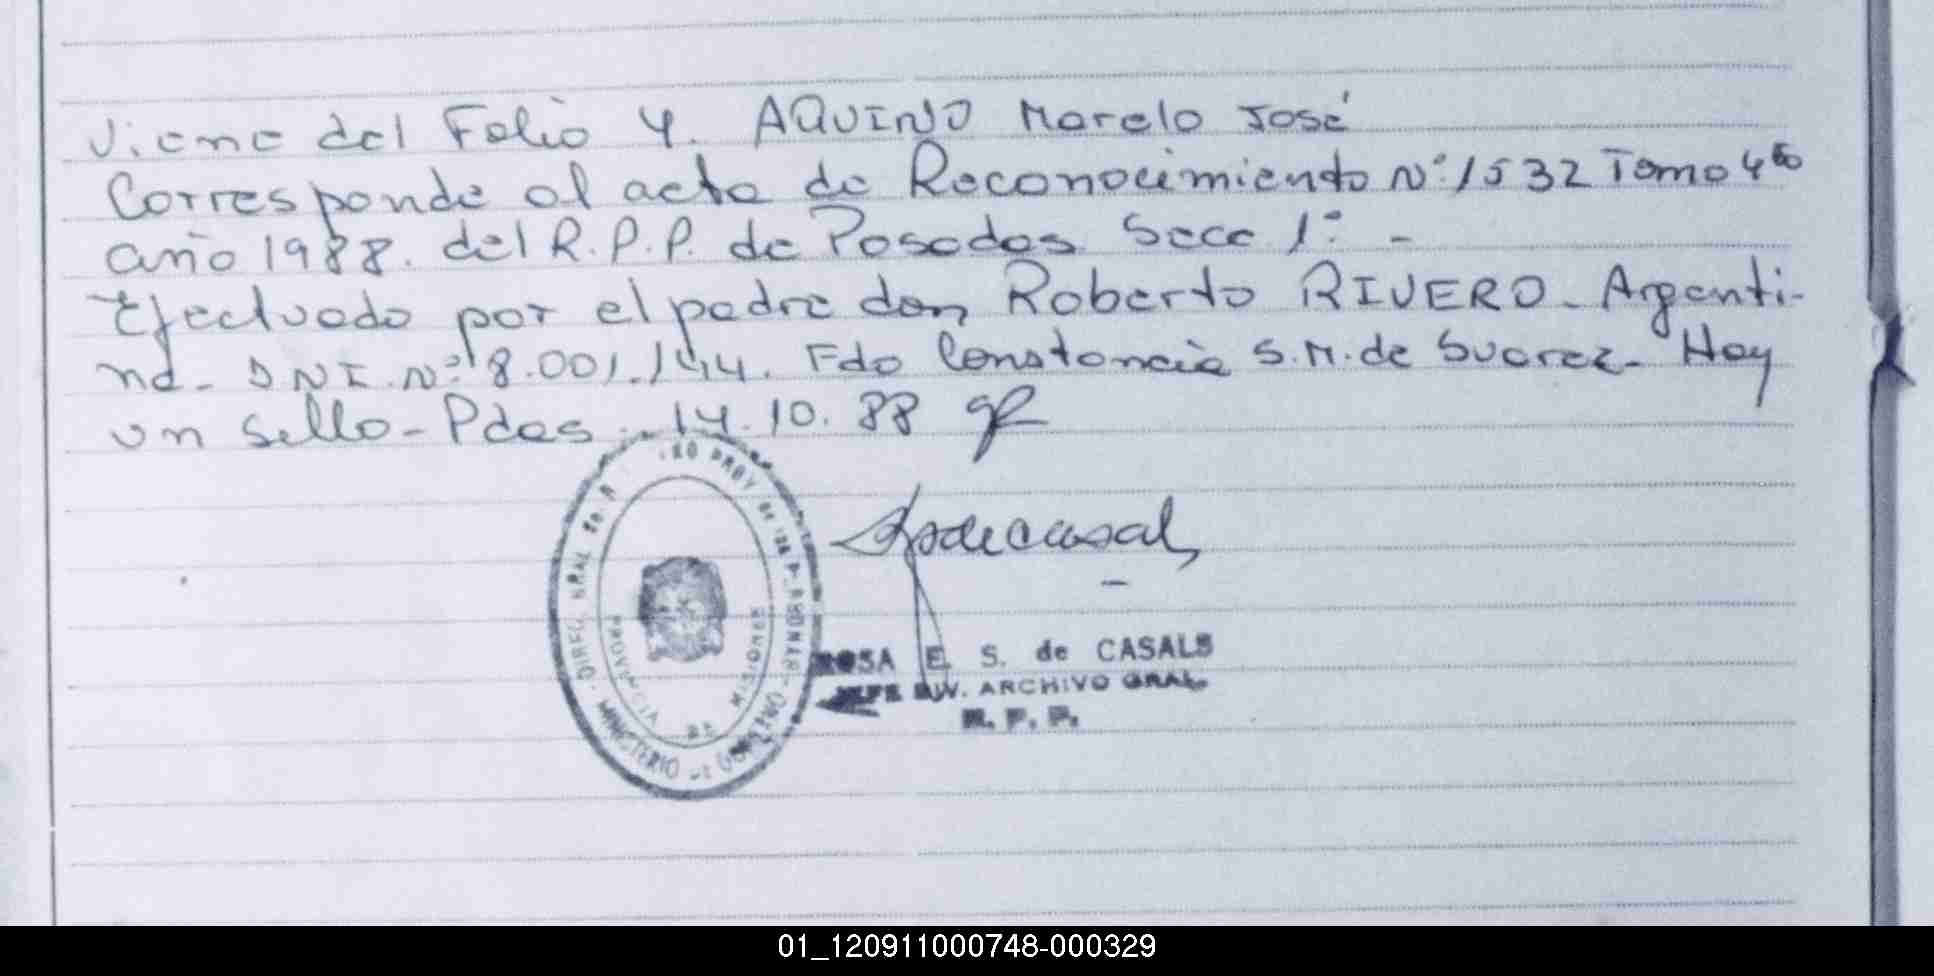 Viene del Folio 4. AQUINO Marelo José
Corresponde al acta de Reconocimiento Nº 1532 Tomo 4to
año 1988. del R.P.P. de Posadas Secc 1º -
Efectuado por el padre don Roberto RIVERO - Argenti-
na - DNI Nº 8.001.144. Fdo Constancia S.M. de Suarez - Hay
un sello - Pdas 14.10.88
DIREC. GRAL PROV de las PERSONAS
MINISTERIO DE GOBIERNO
PROVINCIA DE MISIONES
ROSA E. S. de CASALS
JEFE DIV. ARCHIVO GRAL.
R. P. P.
01_120911000748-000329